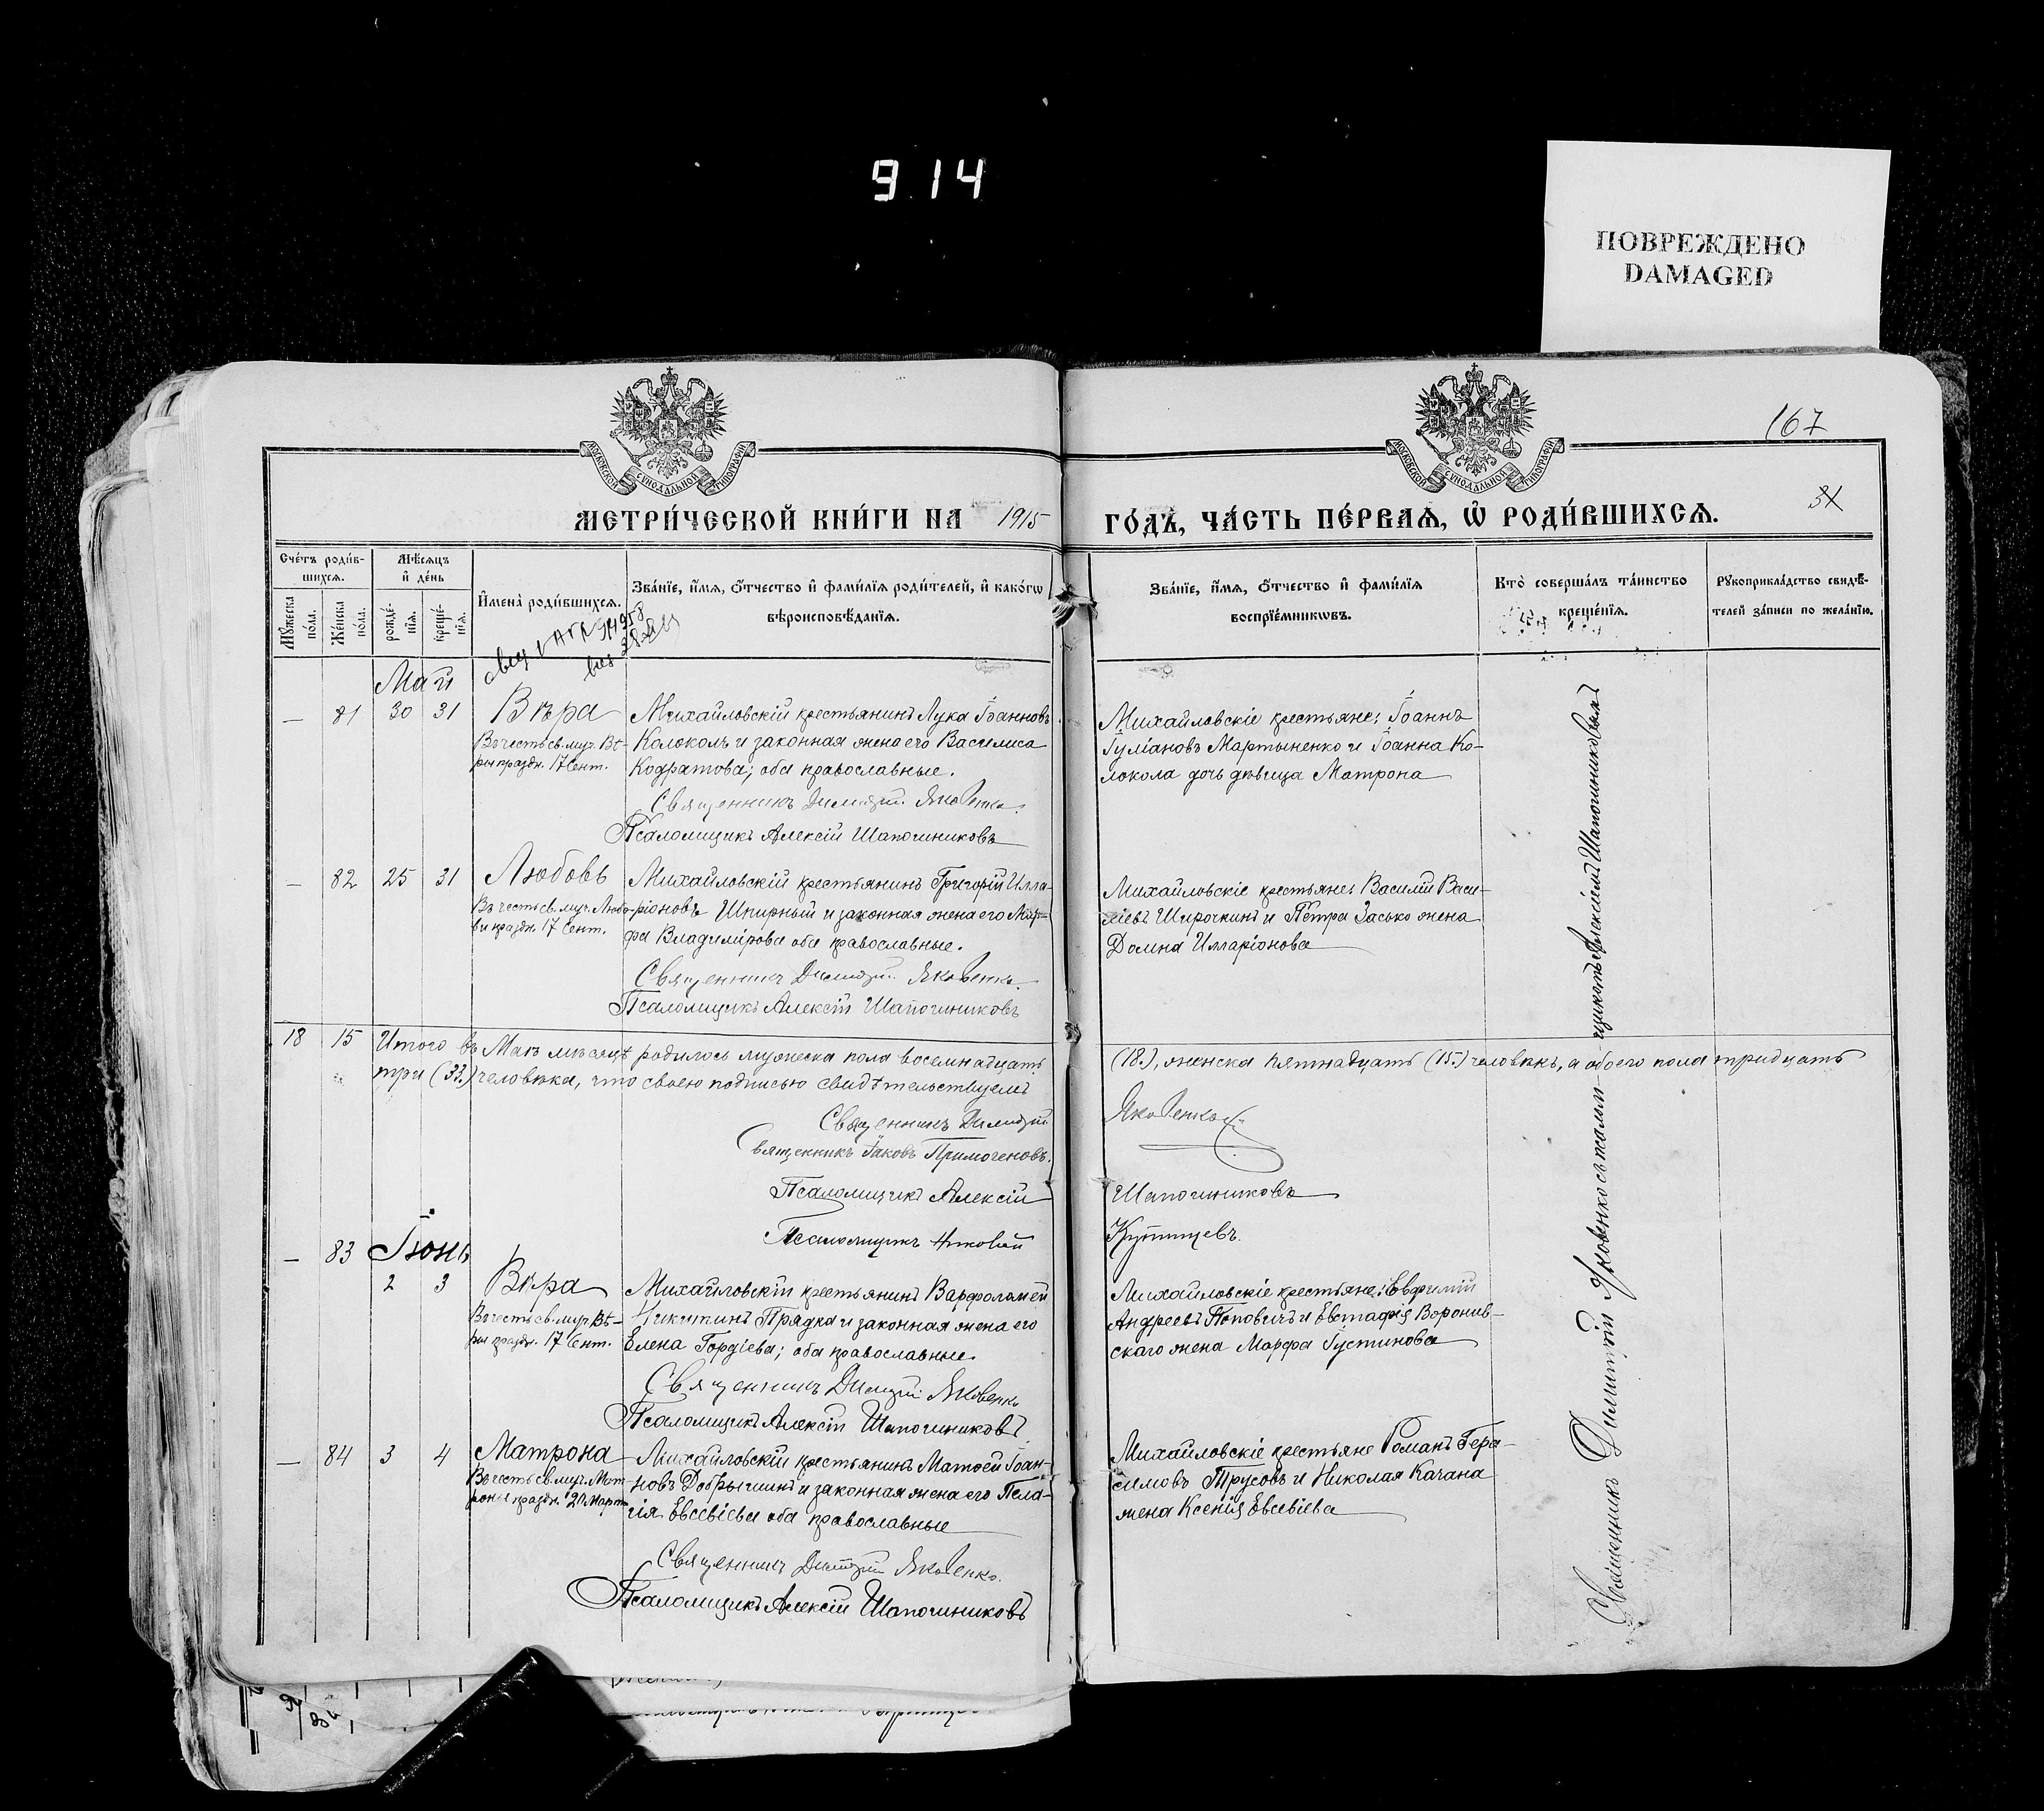 9 14
ПОВРЕЖДЕНО
DAMAGED
167
МОСКОВСКОЙ СѴНОДАЛЬНОЙ ТИПОГРАФІИ
МОСКОВСКОЙ СѴНОДАЛЬНОЙ ТИПОГРАФІИ
МЕТРИ́ЧЕСКОЙ КНИ́ГИ НА 1915
ГО́ДЪ, ЧА́СТЬ ПЕ́РВАѦ, Ѡ҆ РОДИ́ВШИХСѦ.
31
Сче́тъ роди́в-
шихсѧ.
Мѣ́сѧцъ
и҆ де́нь
Мꙋ́жеска
по́ла.
Же́нска
по́ла.
рожде́-
нїѧ.
креще́-
нїѧ.
И҆мена̀ роди́вшихсѧ.
Зва́нїе, и҆́мѧ, ѻ҆́тчество и҆ фами́лїѧ роди́телей, и҆ како́гѡ
вѣроисповѣ́данїѧ.
Зва́нїе, и҆́мѧ, ѻ҆́тчество и҆ фами́лїѧ
воспрїе́мникѡвъ.
Кто̀ соверша́лъ та́инство
креще́нїѧ.
Рꙋкоприкла́дство свидѣ́-
телей за́писи по жела́нїю.
Май
— 81 30 31 Вѣра
Въ честь св. муч. Вѣ-
ры праздн. 17 Сент.
Михайловскій крестьянинъ Лука Іоанновъ
Колоколъ и законная жена его Василиса
Кодратова; оба православные.
Священникъ Димитрій Яковенко.
Псаломщикъ Алексій Шапочниковъ
Михайловскіе крестьяне: Іоаннъ
Іуліановъ Мартыненко и Іоанна Ко-
локола дочь дѣвица Матрона
— 82 25 31 Любовь
Въ честь св. муч. Любо-
ви праздн. 17 Сент.
Михайловскій крестьянинъ Григорій Илла-
ріоновъ Шпирный и законная жена его Мар-
фа Владимірова оба православные.
Священникъ Димитрій Яковенко.
Псаломщикъ Алексій Шапочниковъ
Михайловскіе крестьяне: Василій Васи-
ліевъ Широчкинъ и Петра Засько жена
Домна Илларіонова
18 15 Итого въ Маѣ мѣсяцѣ родилось мужеска пола восемнадцать
(18.), женска пятнадцать (15.) человѣкъ, а обоего пола тридцать
три (33.) человѣка, что своею подписью свидѣтельствуемъ
Священникъ Димитрій
Яковенко
Священникъ Іаковъ Примоченовъ.
Псаломщикъ Алексій
Шапочниковъ
Псаломщикъ Николай
Купинцевъ.
Іюнь
— 83 2 3 Вѣра
Въ честь св. муч. Вѣ-
ры праздн. 17 Сент.
Михайловскій крестьянинъ Варфоломей
Никитинъ Прядка и законная жена его
Елена Гордіева; оба православные
Священникъ Димитрій Яковенко
Псаломщикъ Алексій Шапочниковъ.
Михайловскіе крестьяне: Евфимій
Андреевъ Поповичъ и Евстафія Воронив-
скаго жена Марфа Іустинова
— 84 3 4 Матрона
Въ честь св. муч. Мат-
роны праздн. 20 Март.
Михайловскій крестьянинъ Матѳей Іоан-
новъ Добрычинъ и законная жена его Пела-
гія Евсевіева оба православные
Священникъ Димитрій Яковенко.
Псаломщикъ Алексій Шапочниковъ
Михайловскіе крестьяне Романъ Гера-
симовъ Трусовъ и Николая Качана
жена Ксенія Евсевіева
Священникъ Димитрій Яковенко съ псалом-щикомъ Алексіемъ Шапочниковымъ